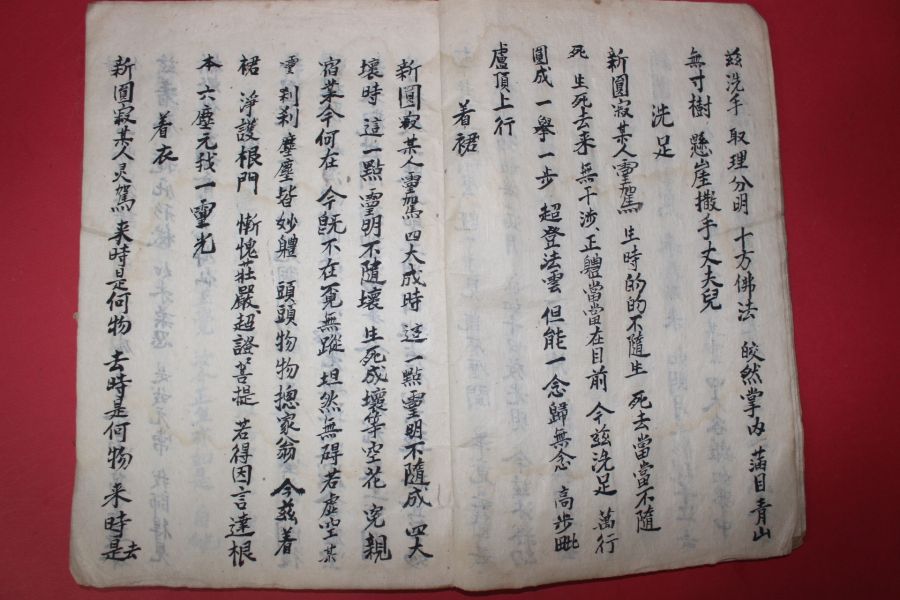 茲洗手 取理分明 十方佛法 皎然掌內 滿目青山
無寸樹 懸崖撒手丈夫兒
洗足
新圓寂某人靈駕 生時的的不隨生 死去當當不隨
死 生死去来 無干涉 正軆當當在目前 今茲洗足 萬行
圓成 一擧一步 超登法雲 但能一念歸無念 高步毗
盧頂上行
着裙
新圓寂某人靈駕 四大成時 這一點靈明不隨成 四大
壞時 這一點靈明不隨壞 生死成壞等空花 寃親
宿業今何在 今旣不在覔無蹤 坦然無碍若虛空 某
靈 刹刹塵塵皆妙軆 頭頭物物摠家翁 今茲着
裙 淨護根門 慚愧莊嚴 超證菩提 若得因言達根
本 六塵元我一靈光
着衣
新圓寂某人灵駕 来時是何物 去時是何物 来時是去